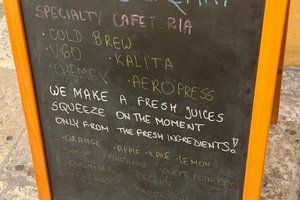 SPECIALTY CAFETERIA
· COLD BREW
· V60 · KALITA
· CHEMEX · AEROPRESS
WE MAKE A FRESH JUICES
SQUEEZE ON THE MOMENT
ONLY FROM THE FRESH INGREDIENTS!!
· ORANGE · APPLE · KALE · LEMON
· PINEAPPLE · SWEET POTATOES